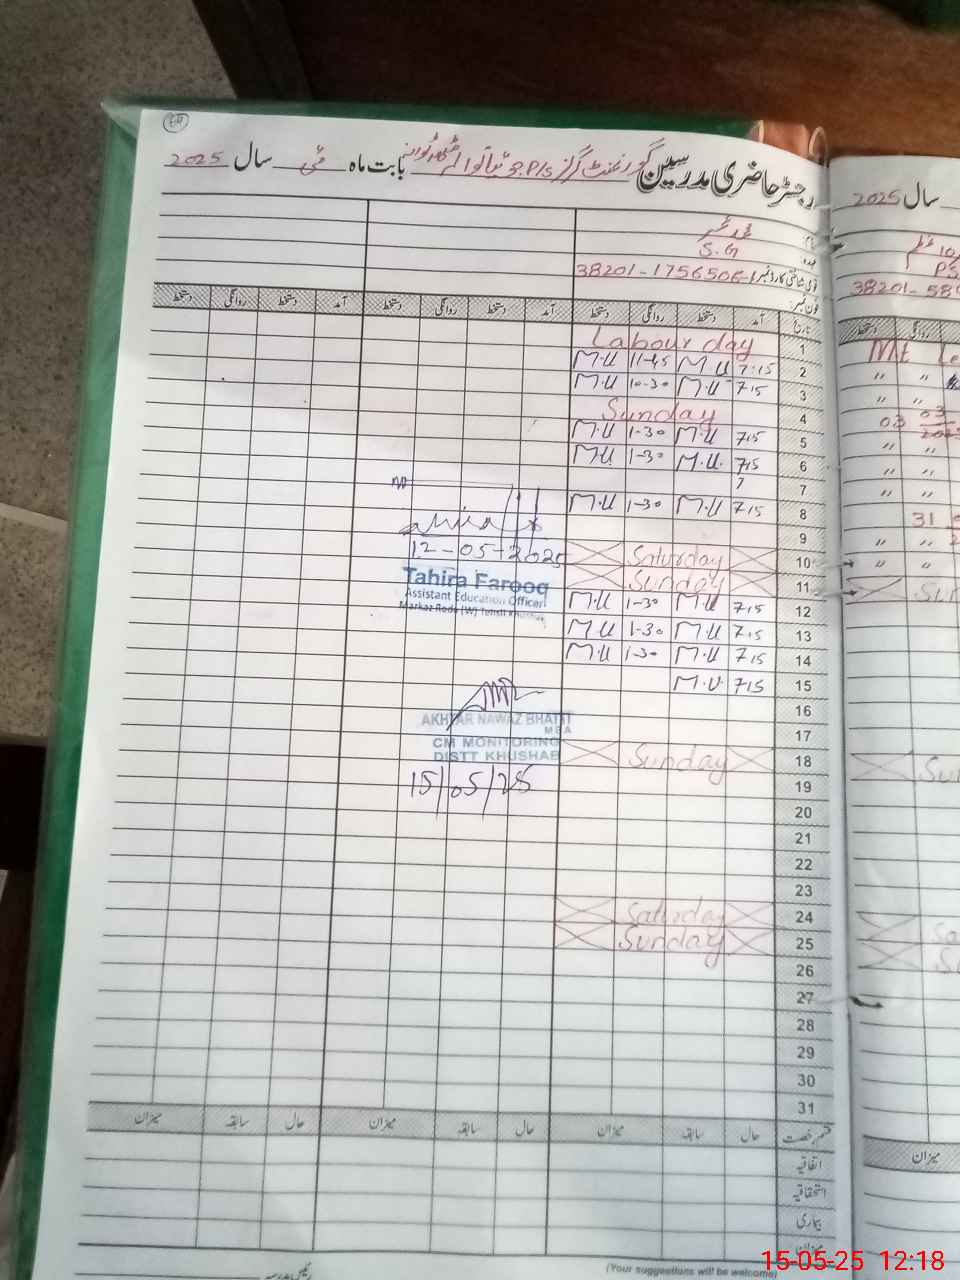 رجسٹر حاضری مدرسین گورنمنٹ گرلز P/S بابت ماہ مئی سال 2025
S.G
قومی شناختی کارڈ نمبر 38201-1756506-
فون نمبر:
تاریخ آمد دستخط روانگی دستخط آمد دستخط روانگی دستخط آمد دستخط روانگی دستخط
1 Labour day
2 7:15 M.U 11-45 M.U
3 7.15 M.U 10-30 M.U
4 Sunday
5 7.15 M.U 1-30 M.U
6 7.15 M.U. 1-30 M.U
7 7
8 7.15 M.U 1-30 M.U
9
10 Saturday
11 Sunday
12 7.15 M.U 1-30 M.U
13 7.15 M.U 1-30 M.U
14 7.15 M.U 1-30 M.U
15 7.15 M.U
16
17
18 Sunday
19
20
21
22
23
24 Saturday
25 Sunday
26
27
28
29
30
31
12-05-2025
Tahira Farooq
Assistant Education Officer
Markaz Roda (W) Tehsil Khushab
AKHTAR NAWAZ BHATTI
MBA
CM MONITORING
DISTT KHUSHAB
15/05/25
قسم رخصت حال سابقہ میزان حال سابقہ میزان حال سابقہ میزان
اتفاقیہ
استحقاقیہ
بیماری
میزان
رئیس مدرسہ
(Your suggestions will be welcome)
سال 2025
38201-58
روانگی دستخط
03
03
2025
31
میزان
15-05-25 12:18